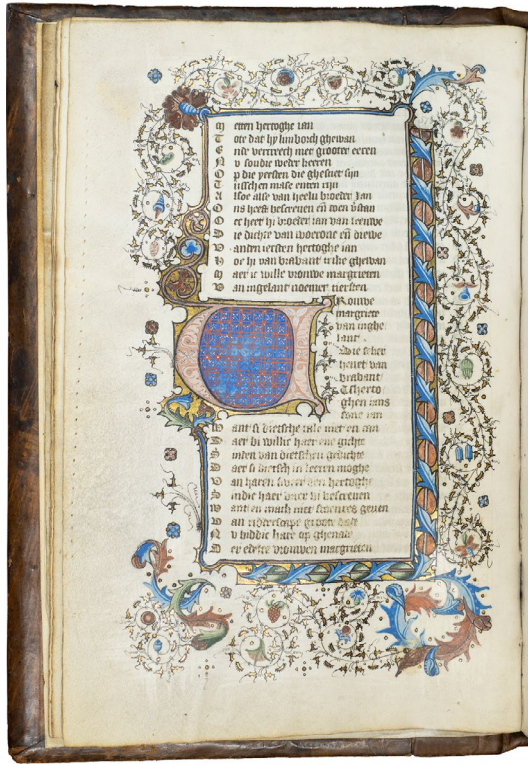 M etten hertoghe ian
T ote dat hy limborch ghewan
E nde vertrech met grooter eeren
N u soudic weder keeren
O p die yersten die ghesuer sijn
T usschen mase enten rijn
A lsoe alse van heelu broeder Jan
O ns heeft bescreuen en̄ wen
O ec heet hi broeder ian van leeuwe
D ie dichte van woerone en̄ diewe
V anden iersten hertoghe ian
H oe hi van brabant tribe ghewan
M aer ic wille vrouwe margrieten
V an ingelant noemen iersten
V Rouwe
margriete
van inghe
lant
Die scher
hebet van
brabant
Tsherto
ghen ians
sone ian
W ant si dietsche tale niet en can
D aer bi willic haer ene gichte
S inden van dietschen gedichte
D aer si dietsch in leeren moghe
V an haren sweer den hertoghe
S indic haer bi bescreuen
W ant en mach niet scoenres geuen
V an ridderscape groote
N u biddic hare op ghenade
D er edelre vrouwen margrieten